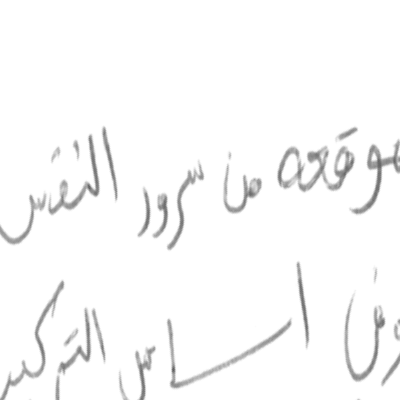 موقعه من سرور النفس
اساس التركيب